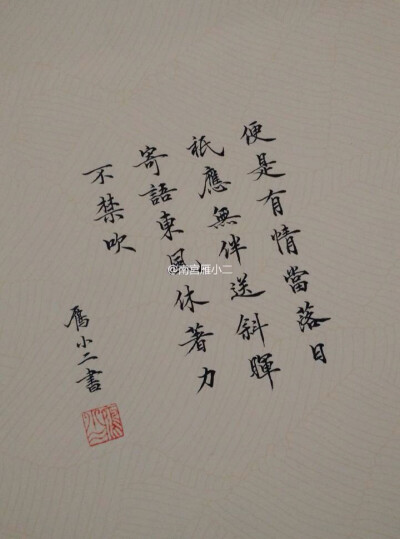 便是有情當落日
祇應無伴送斜暉
寄語東風休著力
不禁吹
雁小二書
@南宫雁小二